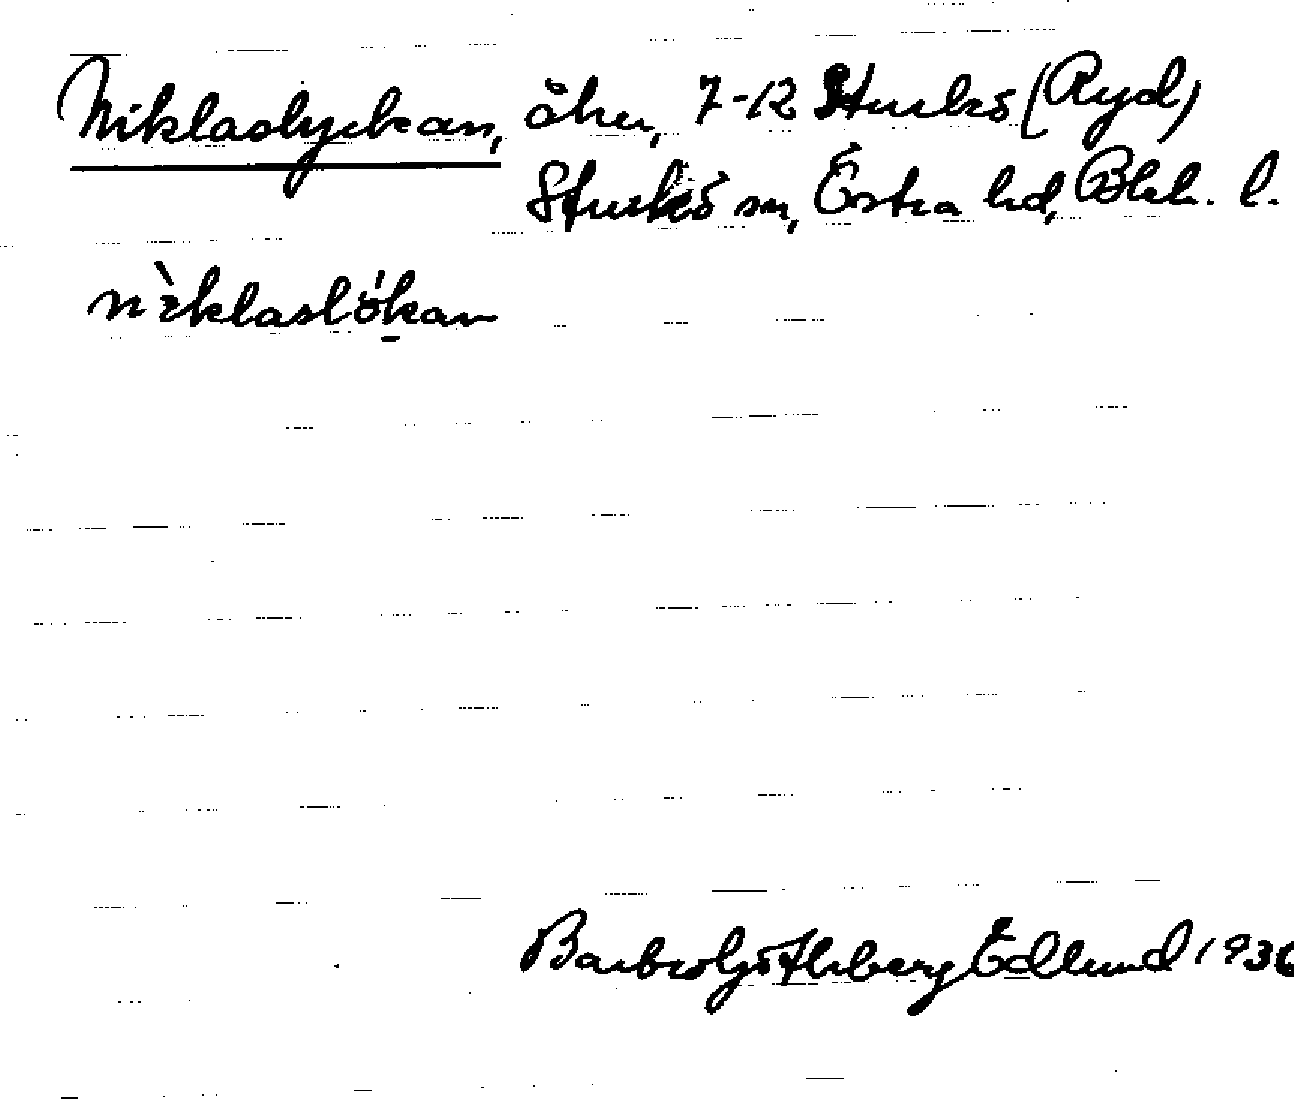 Niklaslyckan, åker, 7-12 Sturkö (Ryd)
Sturkö sn, Östra hd, Blek. l.
nìklaslókan
Barbro Götherberg Edlund 1936